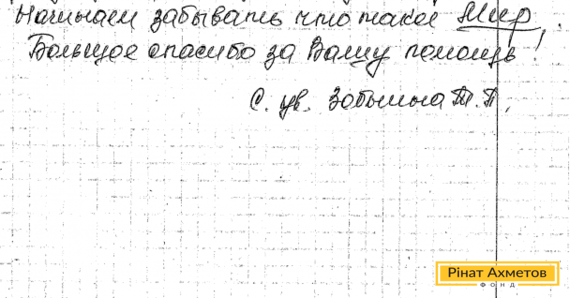 Начинаем забывать что такое Мир.
Большое спасибо за Вашу помощь!
С. ув. Зобынина Т.П.
Рінат Ахметов
ФОНД